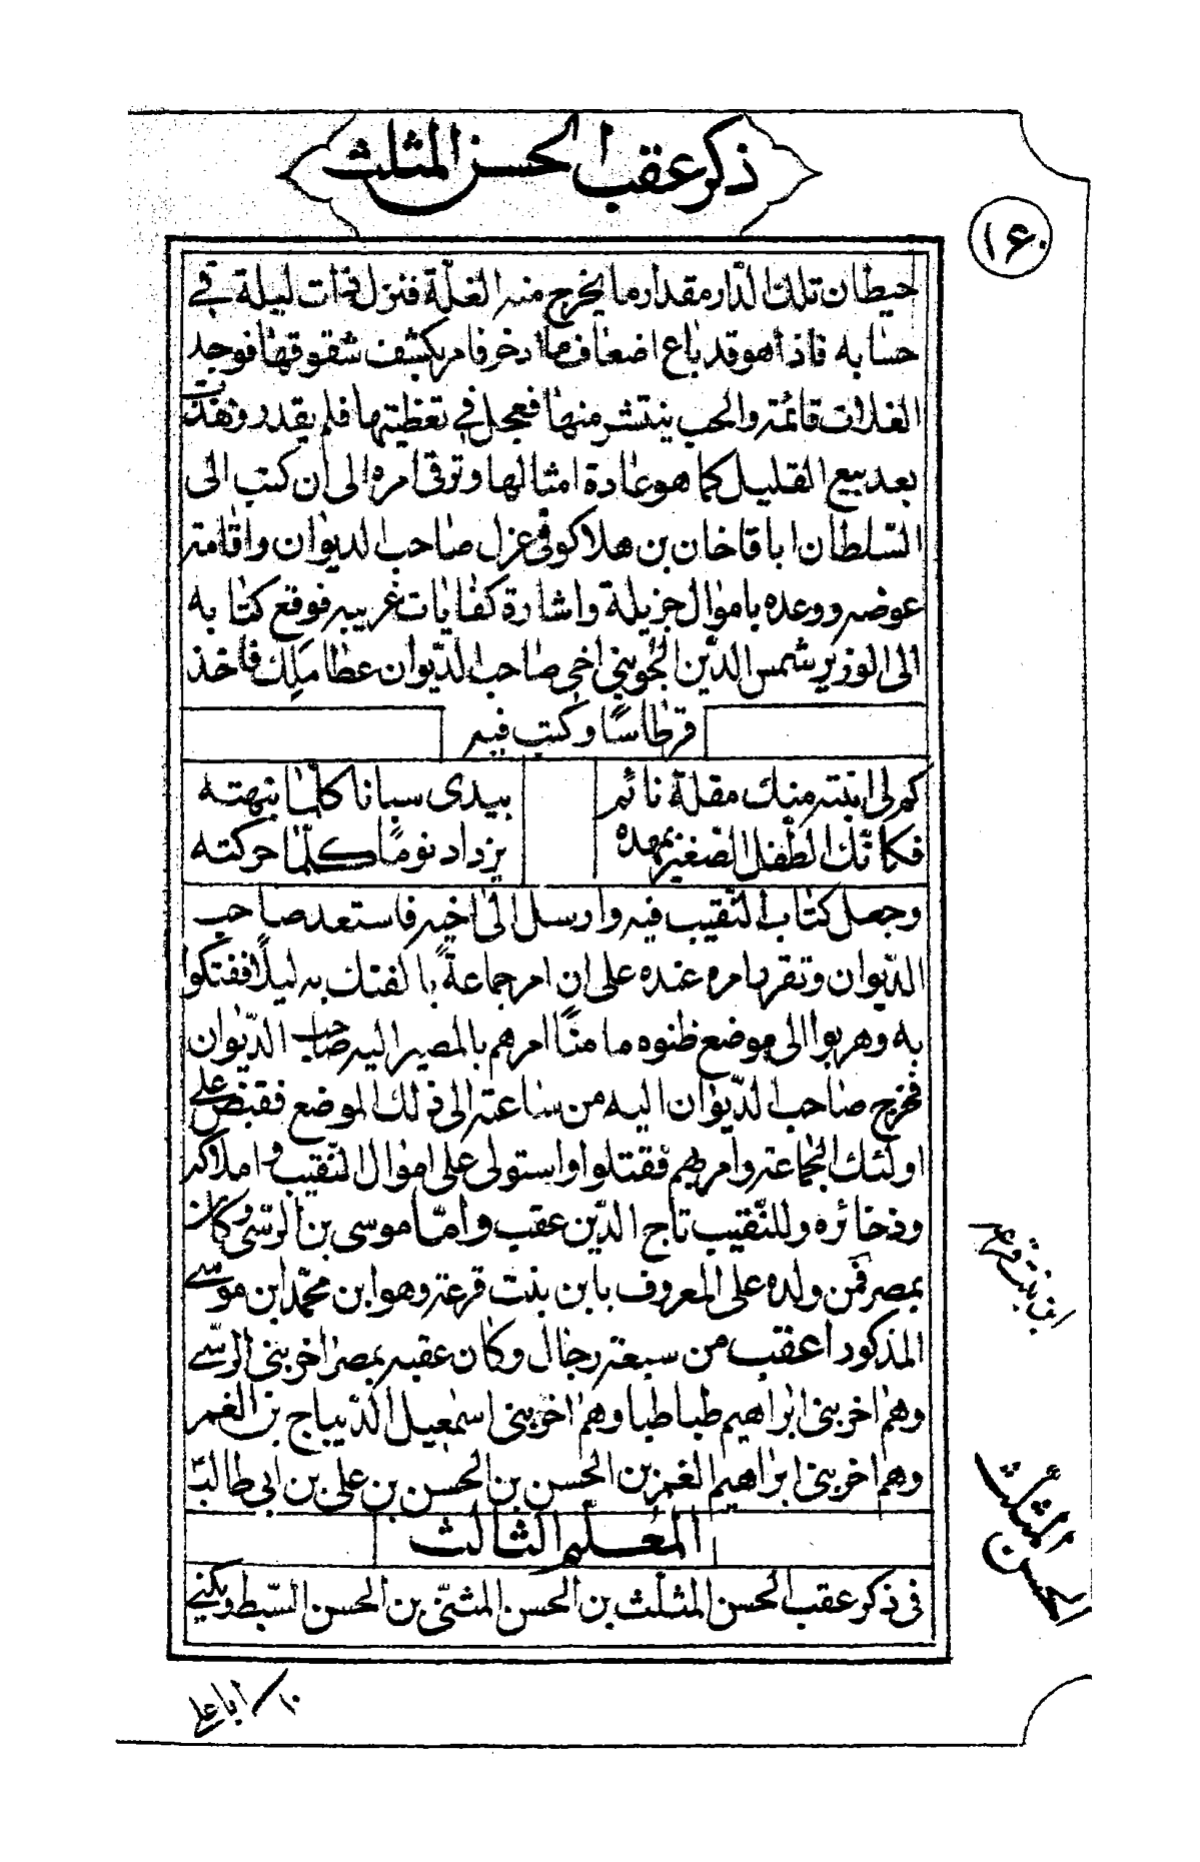 ذكر عقب الحسن المثلث
١۶٠
حيطان تلك الدّار مقدار ما يخرج منه الغلّة فنزل ذات ليلة في
حسابه فاذا هو قد باع اضعاف ما ادخر فامر بكشف شقوقها فوجد
الغلات قائمة والحب ينتثر منها فعجل في تغطيتها فلم يقدر ونفذت
بعد بيع القليل كما هو عادة امثالها وترقى امره الى ان كتب الى
السّلطان اباقا خان بن هلاكو في عزل صاحب الديوان واقامته
عوضه ووعده باموال جزيلة واشارة كفايات غريبه فوقع كتابه
الى الوزير شمس الدّين الجويني اخى صاحب الدّيوان عطا ملك فاخذ
قرطاسًا وكتب فيه
كم لى انبّه منك مقلة نائم
بيدى سباتا كلّما نبهته
فكانّك الطّفل الصّغير بمهده
يزداد نومًا كلّما حركته
وجعل كتاب النّقيب فيه وارسل الى اخيه فاستعد صاحب
الدّيوان وتقرر امره عنده على ان امر جماعة بالفتك به ليلًا ففتكوا
به وهربوا الى موضع ظنوه مامنًا امرهم بالمصير اليه صاحب الدّيوان
فخرج صاحب الدّيوان اليه من ساعته الى ذلك الموضع فقبض على
اولئك الجماعة وامر بهم فقتلوا واستولى على اموال النّقيب و املاكه
وذخائره وللنّقيب تاج الدّين عقب وامّا موسى بن الرّسّى وكان
بمصر فمن ولده على المعروف بابن بنت قرعة وهو ابن محمّد ابن موسى
المذكور اعقب من سبعة رجال وكان عقبه بمصر اخر بنى الرسى
وهم اخر بنى ابراهيم طباطبا وهم اخر بنى اسمعيل الدّيباج بن الغمر
وهم اخر بنى ابراهيم الغمر بن الحسن بن الحسن بن على بن ابى طالب
المعلم الثالث
فى ذكر عقب الحسن المثلّث بن الحسن المثنّى بن الحسن السّبط ويكنى
ابن بنت قرعه
الحسن المثلث
ابا على